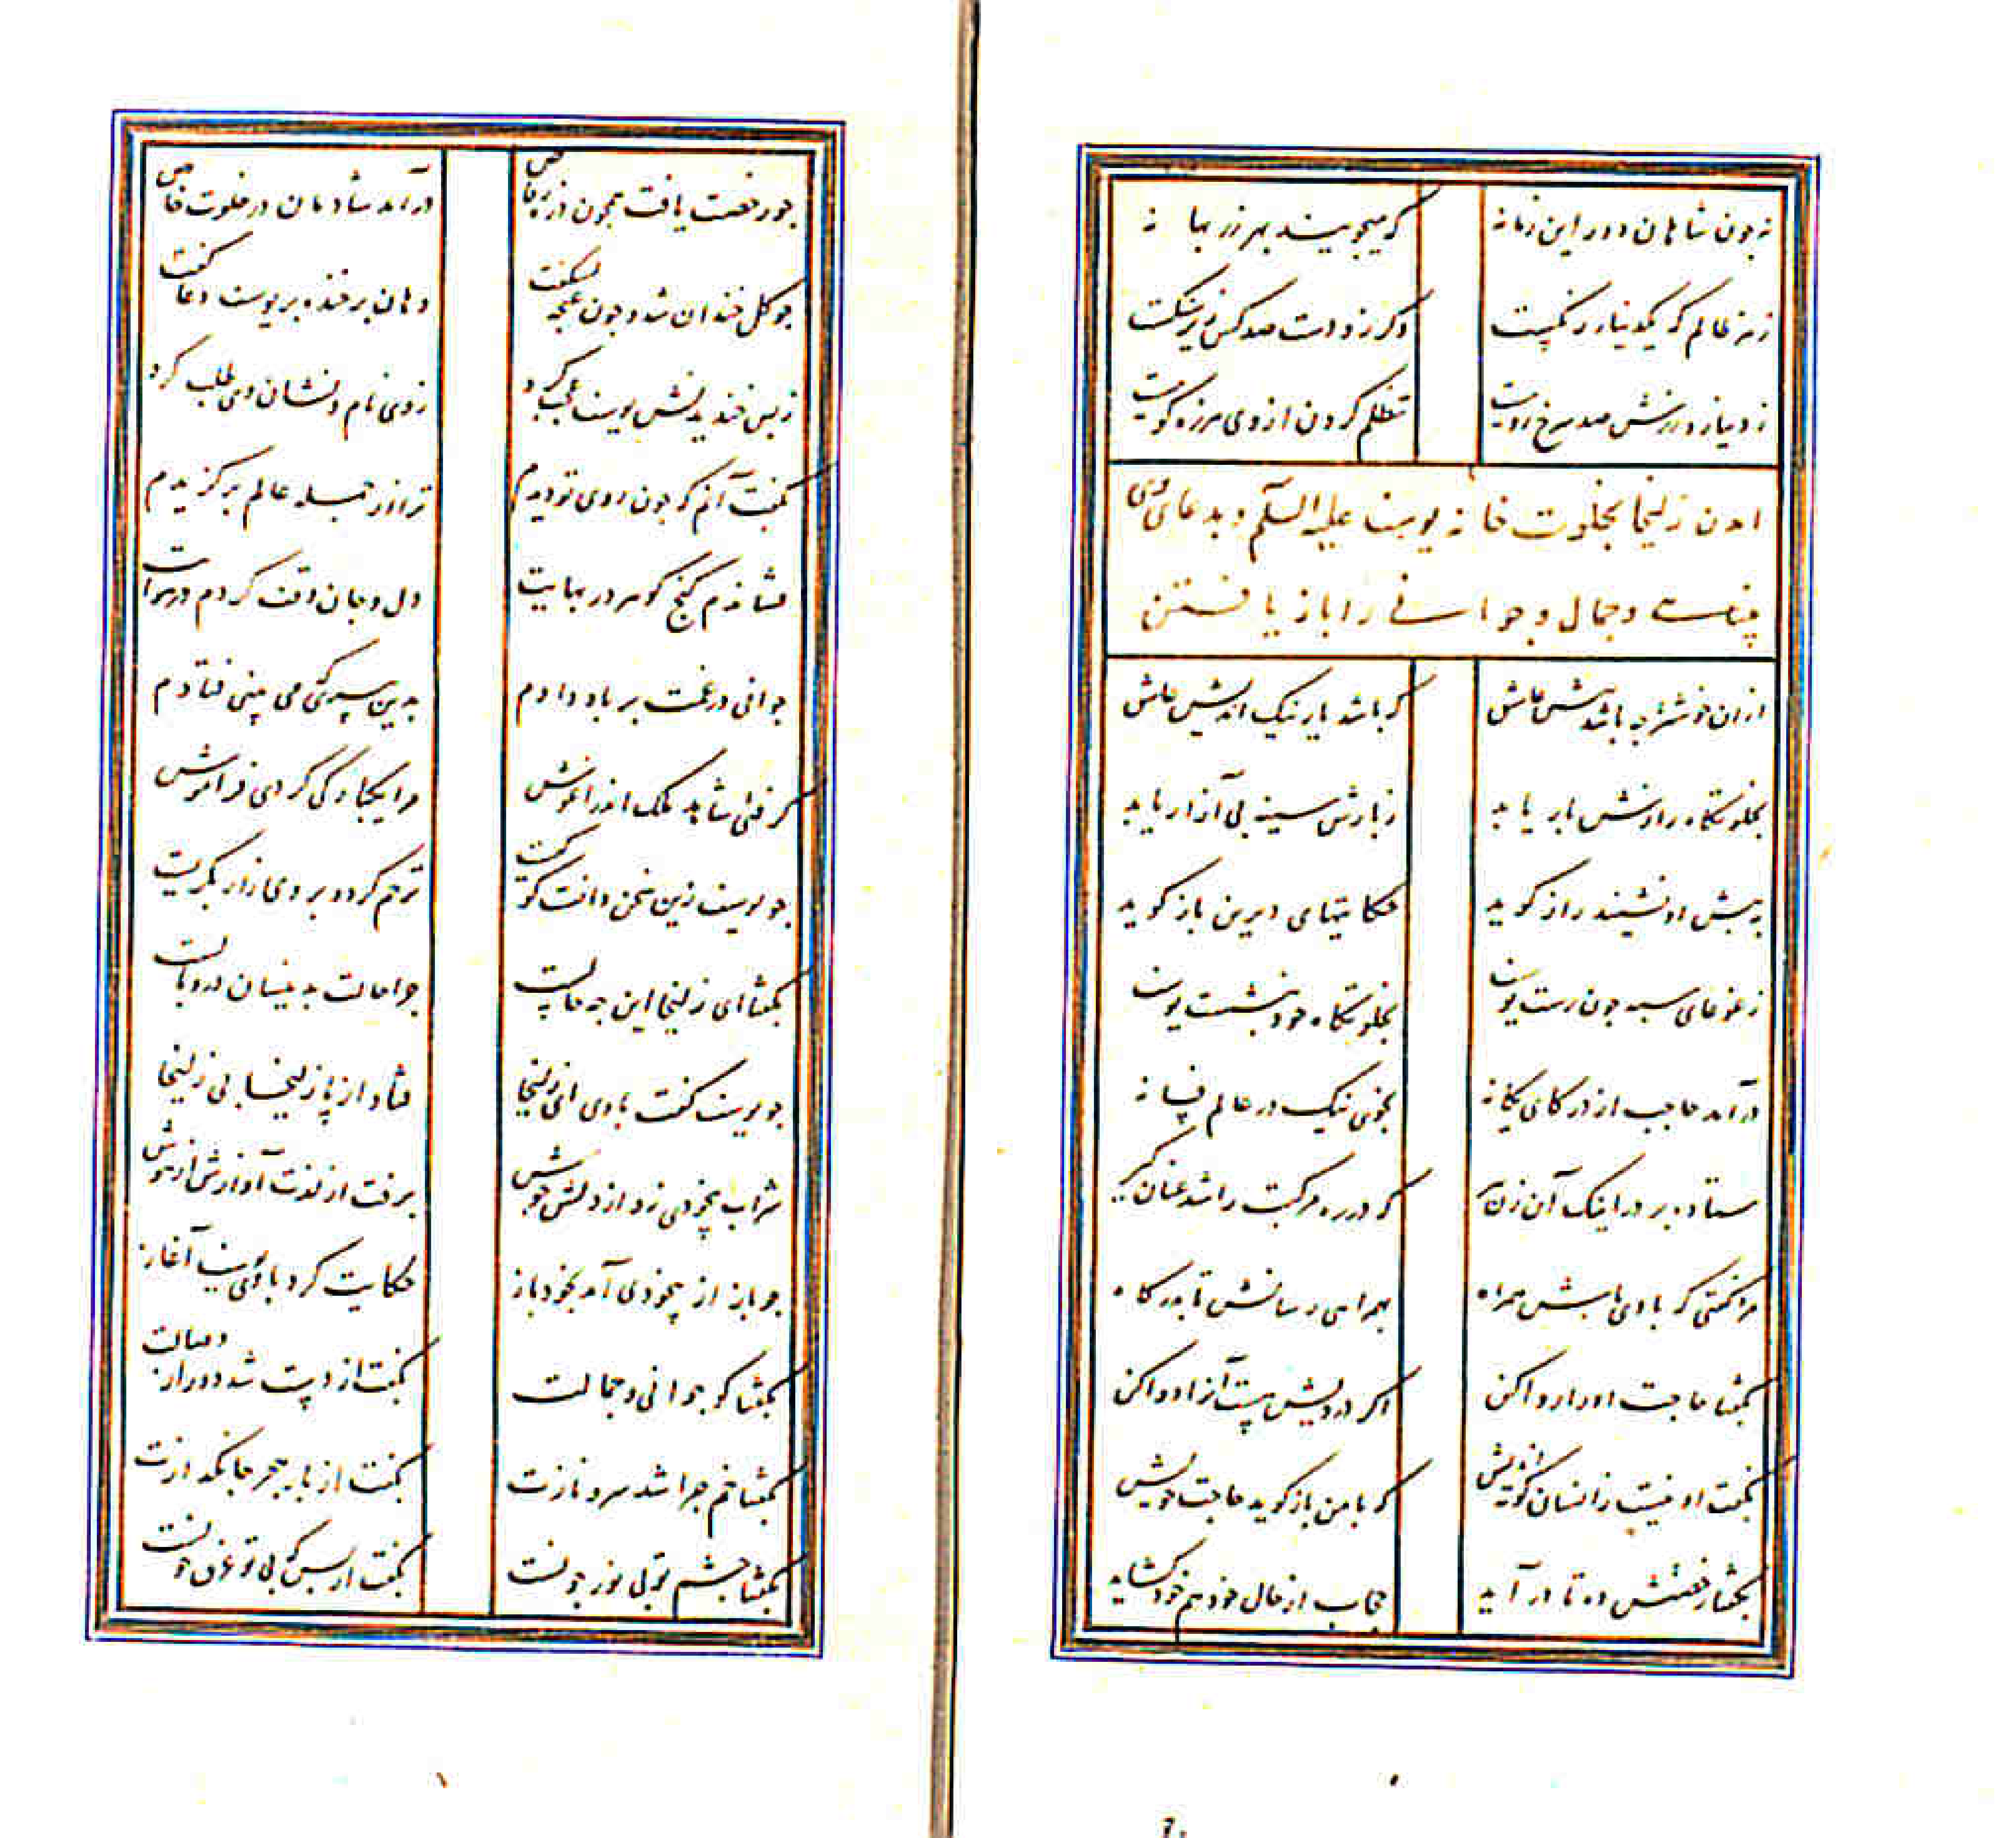 نه چون شاهان دور این زمانه که میجویند بهر زر بهانه
ز هر ظالم که یکدینار زر و کر زو دست صد کس زیر
ز دینار و زرش صد سرخ رویست تظلم کردن از وی هرزه کویست
امدن زلیخا بخلوت خانه یوسف علیه السلم و بدعای وی
بینایی و جمال و جوانی را باز یافتن
ازان خوشتر چه باشد پیش عاشق که باشد یار نیک اندیش عاشق
بخلوتکاه رازش بار یابد ز بارش سینه بی آزار یابد
به پیش او نشیند راز کوید حکایتهای دیرین باز کوید
ز غوغای سپه چون رست یوسف بخلوتکاه خود بنشست یوسف
درآمد حاجب از در کای یکانه بخوی نیک در عالم فسانه
ستاده بر در اینک آن زن پیر که در ره مرکبت را شد عنان کیر
مرا کفتی که با وی باش همراه بهمراهی رسانش تا بدرکاه
بکفتا حاجت او را روا کن اکر دردیش هست آنرا دوا کن
بکفت او نیست زانسان کوته اندیش که با من باز کوید حاجت خویش
بکفتا رخصتش ده تا در آید حجاب از حال خود هم خود کشاید
چو رخصت یافت همچون ذره رقاص درآمد شادمان در خلوت خاص
چو کل خندان شد و چون غنچه بشکفت دهان پر خنده بر یوسف دعا کفت
ز بس خندیدنش یوسف عجب کرد ز وی نام و نشان وی طلب کرد
بکفت آنم که چون روی تو دیدم ترا از جمله عالم برکزیدم
فشاندم کنج کوهر در بهایت دل و جان وقف کردم در هوایت
جوانی در غمت بر باد دادم بدین پیری که می بینی فتادم
کرفتی شاهد ملک اندر آغوش مرا یکبارکی کردی فراموش
چو یوسف زین سخن دانست کو کیست ترحم کرد و بر وی زار بکریست
بکفتا ای زلیخا این چه حالست چرا حالت بدینسان در وبالست
چو یوسف کفت با وی ای زلیخا فتاد از پا زلیخا بی زلیخا
شراب بیخودی زد از دلش جوش برفت از لذت آوازش از هوش
چو باز از بیخودی آمد بخود باز حکایت کرد با وی یوسف آغاز
بکفتا کو جوانی و جمالت بکفت از دست شد دور از وصالت
بکفتا خم چرا شد سرو نازت بکفت از بار هجر جانکدازت
بکفتا چشم تو بی نور چونست بکفت از بس که بی تو غرق خونست